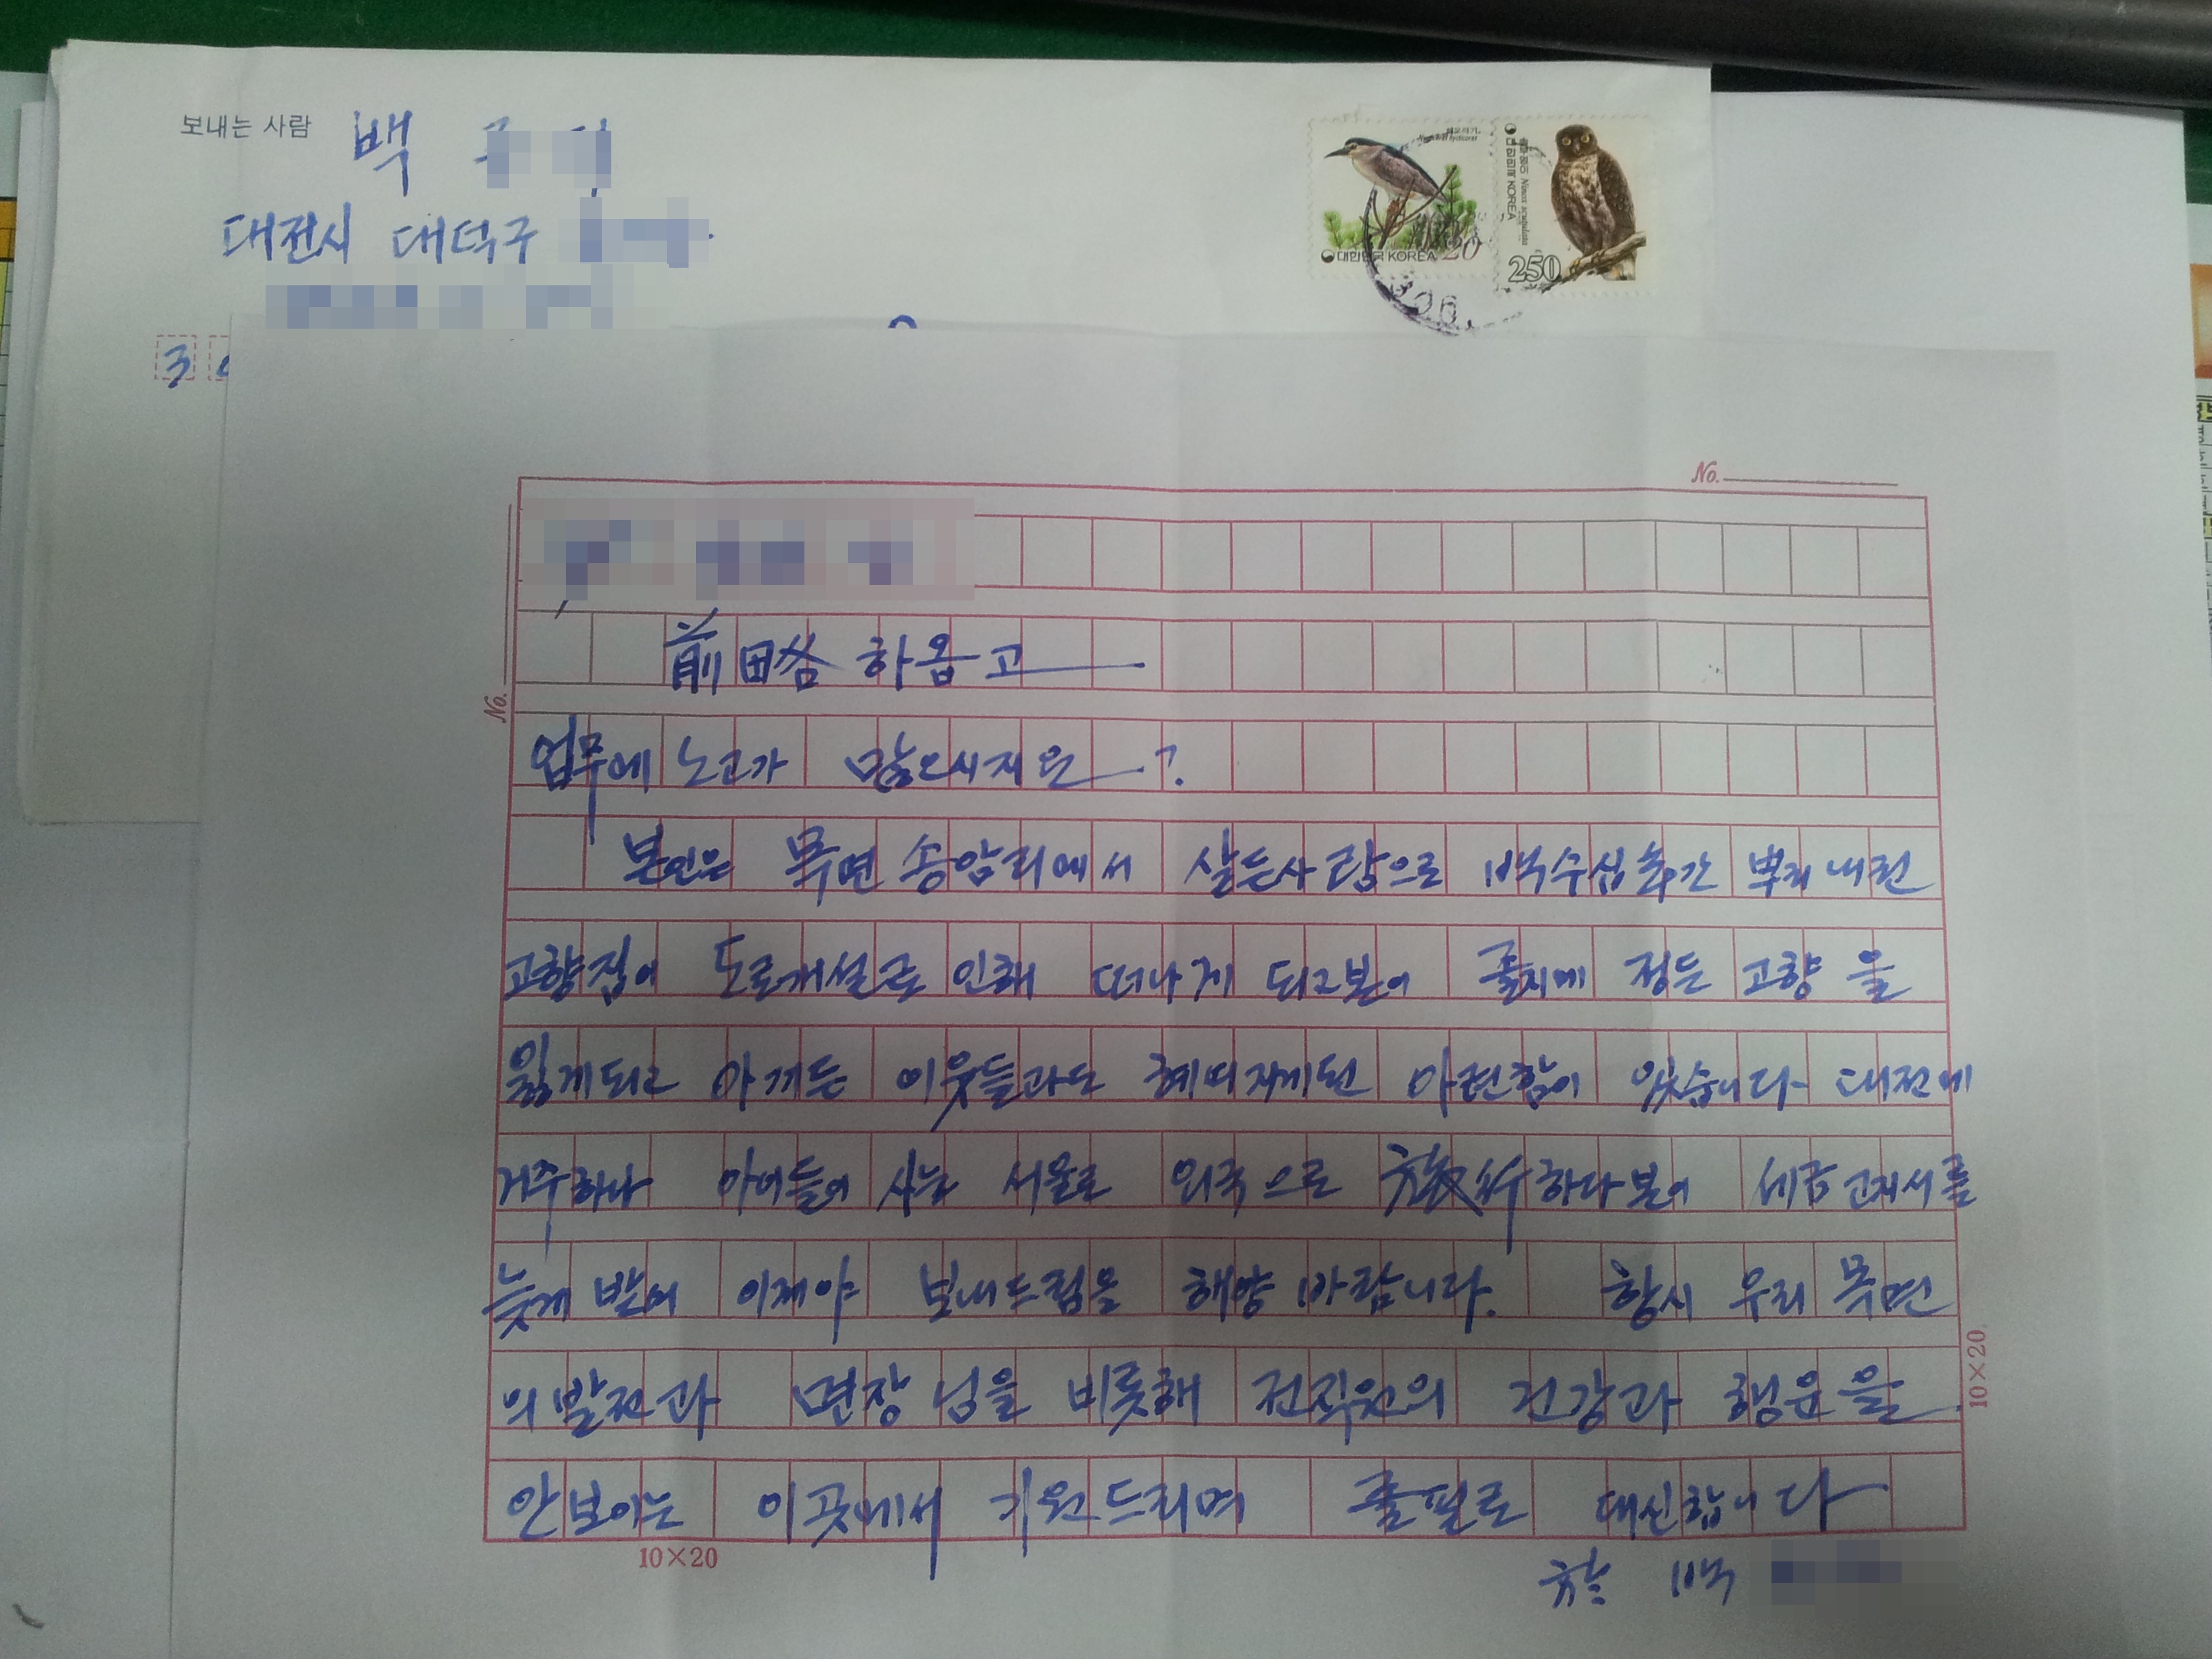 보내는 사람 백
대전시 대덕구
3
대한민국 KOREA 20
대한민국 KOREA
Ninox scutulata
250
No.
No.
前略 하옵고
업무에 노고가 많으시지요 ?
본인은 목면 송암리에서 살든사람으로 백수십年간 뿌리내린
고향집이 도로개설로 인해 떠나게 되고보이 졸지에 정든 고향을
잃게되고 아끼든 이웃들과도 헤여지게된 아련함이 있습니다 대전에
거주하나 아이들이 사는 서울로 외국으로 하다보이 세금고지서를
늦게 받어 이제야 보내드림을 해량 바람니다. 항시 우리 목면
의 발전과 면장님을 비롯해 전직원의 건강과 행운을
안보이는 이곳에서 기원드리며 졸필로 대신합니다
10×20
10×20
백